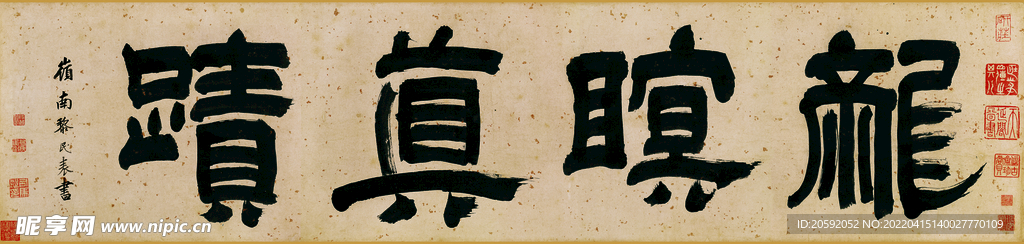 龍
瞑
真
蹟
嶺南黎民表書
昵享网 www.nipic.cn
ID:20592052 NO:20220415140027770109